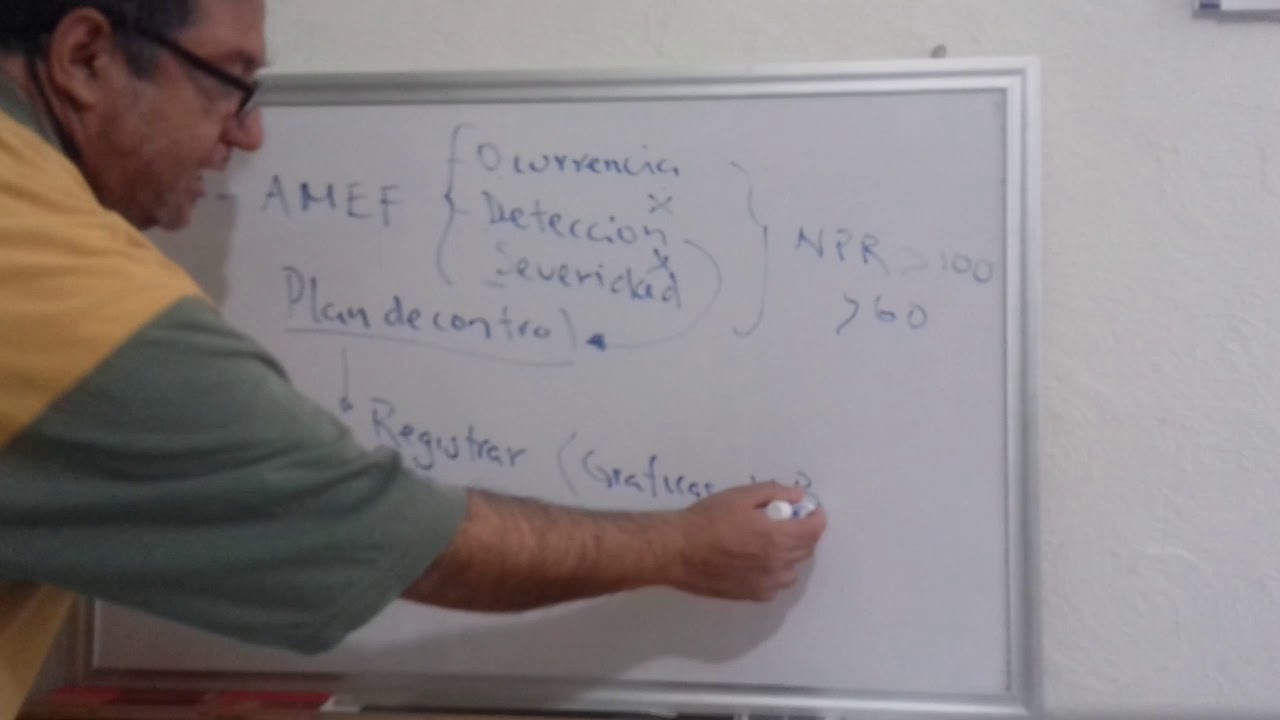 - AMEF { Ocurrencia
x
Detección
x
Severidad
} NPR > 100
> 60
Plan de control
Registrar (Graficas